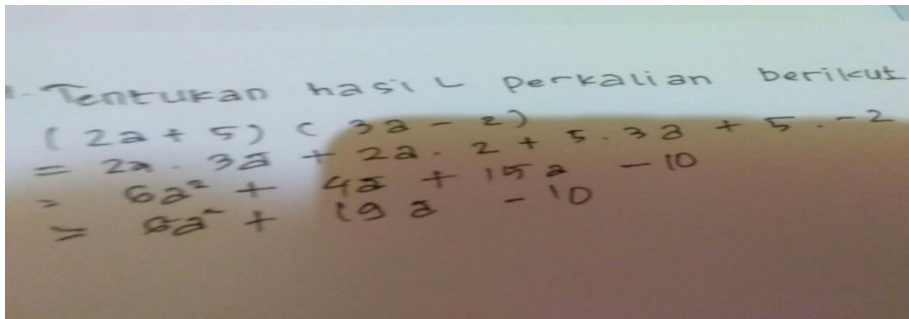 Tentukan hasil perkalian berikut
(2a + 5) (3a - 2)
= 2a . 3a + 2a . 2 + 5 . 3a + 5 . -2
= 6a² + 4a + 15a - 10
= 6a² + 19a - 10